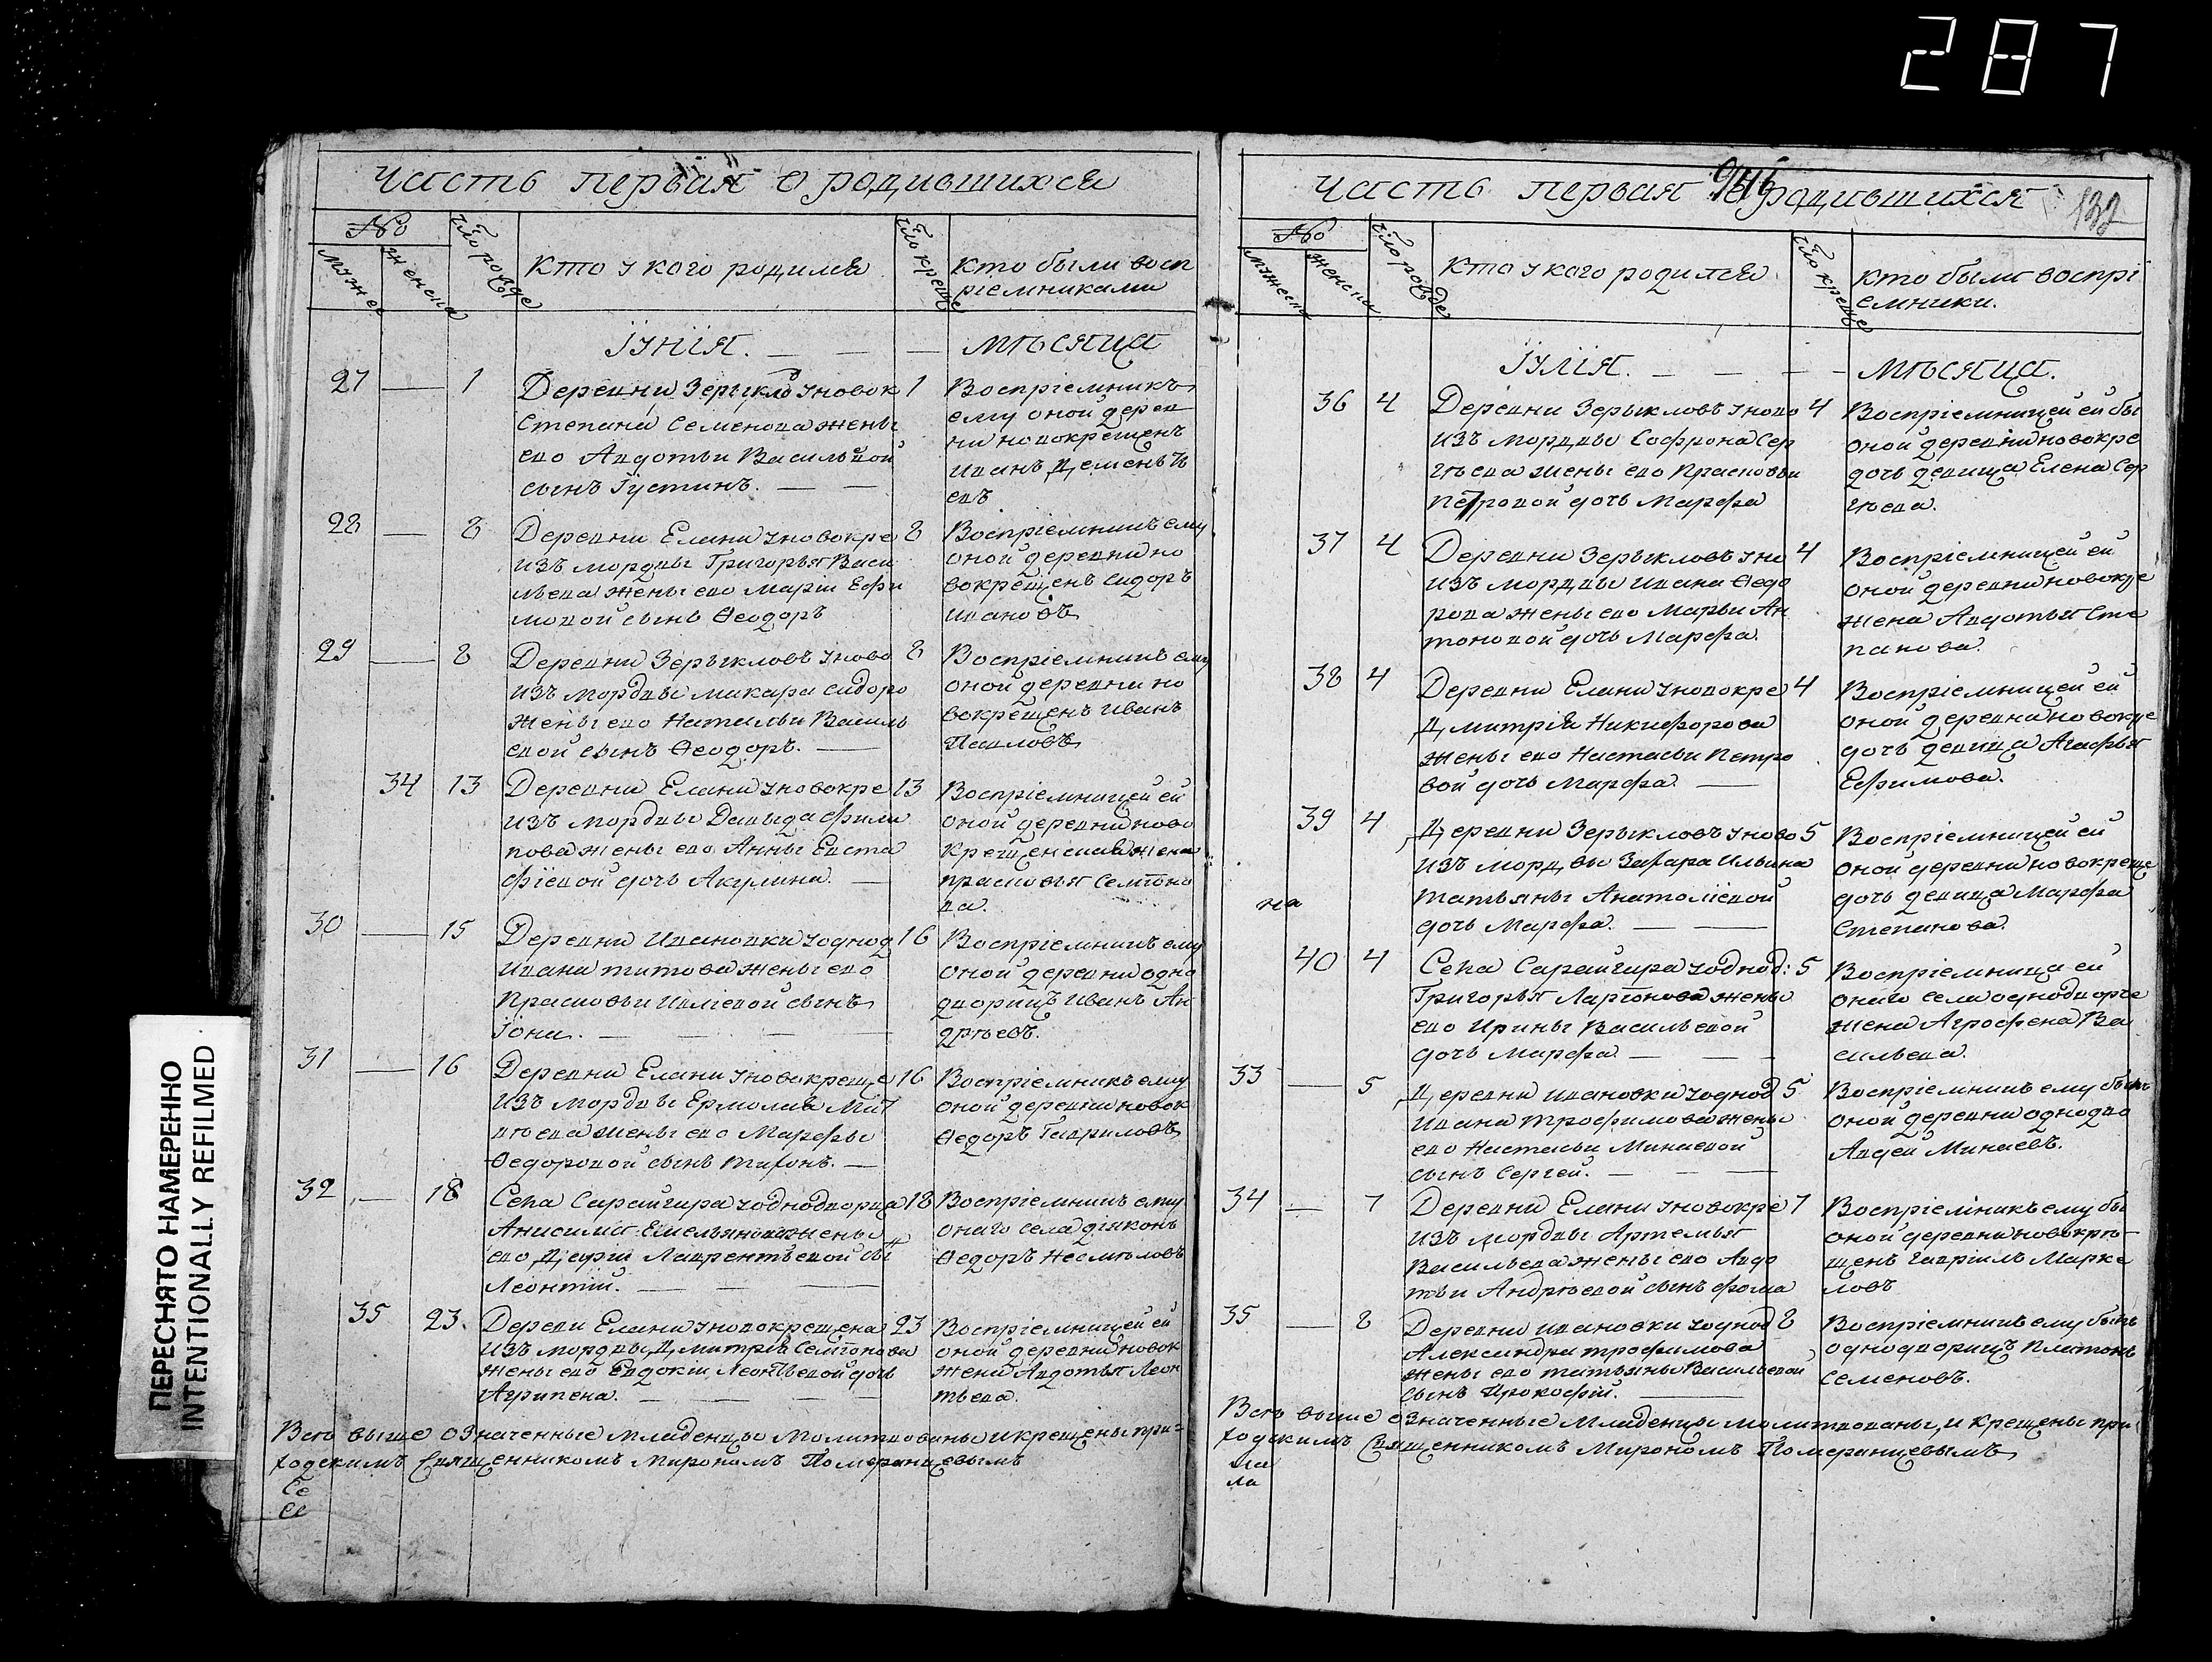 287
ПЕРЕСНЯТО НАМЕРЕННО
INTENTIONALLY REFILMED
Часть первая о родившихся
№
мужс
женска
Чло рожде
Кто у кого родился
Чло креще
Кто были восп
ріемниками
Іунія. — — — Мѣсяца
27 — 1 Деревни Зерыкло уновок 1
Степана Семенова жены
ево Авдотьи Васильевой
сынъ Іустинъ. — —
Воспріемникъ
ему оной дерев
ни новокрещенъ
Иванъ Дементь
евъ
28 — 8 Деревни Елани уновокре 8
изъ мордвы Григорья Васи
льева жены ево Маріи Ефи
мовой сынъ Ѳеодоръ
Воспріемникъ ему
оной деревни но
вокрещенъ Сидоръ
Ивановъ
29 — 8 Деревни Зерыкловъ уново 8
изъ мордвы Макара Сидоро
жены ево Натальи Василь
евой сынъ Ѳеодоръ. —
Воспріемникъ ему
оной деревни но
вокрещенъ Иванъ
Павловъ
34 13 Деревни Елани уновокре 13
изъ мордвы Давыда Фили
пова жены ево Анны Евста
фіевой дочь Акулина. —
Воспріемницей ей
оной деревни ново
крещенска жена
Прасковья Семіоно
ва.
30 — 15 Деревни Ивановки уоднод 16
Ивана Титова жены ево
Прасковьи Ивліевой сынъ
Іона. — — —
Воспріемникъ ему
оной деревни одно
дворицъ Иванъ Ан
дрѣевъ.
31 — 16 Деревни Елани уновокреще 16
изъ мордвы Ермолая Мат
вѣева жены ево Марфы
Ѳедоровой сынъ Тихонъ. —
Воспріемникъ ему
оной деревни новок
Ѳедоръ Гавриловъ
32 — 18 Села Сарайгира уоднодворца 18
Анисима Емельянова жены
ево Даріи Лаврентьевой сы
Леонтій. — —
Воспріемникъ ему
онаго села діяконъ
Ѳедоръ Несмѣловъ
35 23. Деревни Елани уновокрещена 23
изъ мордвы Дмитрія Семіонова
жены ево Евдокіи Леонтьевой дочь
Агрипена. — — —
Воспріемницей ей
оной деревни новок
жена Авдотья Леон
тьева.
Всѣ выше означенные младенцы молитвованы и крещены при-
ходскимъ Священникомъ Мирономъ Померанцевымъ
Се
Се
Часть первая о родившихся
132
№
мужеск
женски
Чло рожде
Кто у кого родился
Чло креще
Кто были воспрі
емники.
Іулія. — — — Мѣсяца.
36 4 Деревни Зерыкловъ уново 4
изъ мордвы Софрона Сер
гѣева жены ево Прасковьи
Петровой дочь Марфа
Воспріемницей ей бы
оной деревни новокре
дочь девица Елена Сер
гѣева.
37 4 Деревни Зерыкловъ уно 4
изъ мордвы Ивана Ѳедо
рова жены ево Марьи Ан
тоновой дочь Марфа.
Воспріемницей ей
оной деревни новокре
жена Авдотья Сте
панова.
38 4 Деревни Елани уновокре 4
Дмитрія Никифорова
жены ево Настасьи Петро
вой дочь Марфа. —
Воспріемницей ей
оной деревни новокре
дочь девица Агафья
Ефимова.
39 4 Деревни Зерыкловъ уново 5
изъ мордвы Захара Ильина
Татьяны Анатоліевой
дочь Марфа. — —
Воспріемницей ей
оной деревни новокреще
дочь девица Марфа
Степанова.
на
40 4 Села Сарайгира уоднод: 5
Григорья Ларіонова жены
ево Ирины Васильевой
дочь Марфа. — — —
Воспріемница ей
онаго села однодворче
жена Агрофена Ва
сильева.
33 — 5 Деревни Ивановки уоднод 5
Ивана Трофимова жены
ево Настасьи Минаевой
сынъ Сергей. — — —
Воспріемникъ ему былъ
оной деревни однодво
Авдей Минаевъ.
34 — 7 Деревни Елани уновокре 7
изъ мордвы Артемья
Васильева жены ево Авдо
тьи Андрѣевой сынъ Фома
Воспріемникъ ему бы
оной деревни новокре-
щенъ Гавріилъ Марке
ловъ
35 — 8 Деревни Ивановки уоднод 8
Александра Трофимова
жены ево Татьяны Васильевой
сынъ Прокофій. —
Воспріемникъ ему былъ
однодворицъ Платонъ
Семеновъ.
Всѣ выше означенные младенцы молитвованы, и крещены при-
ходскимъ Священникомъ Мирономъ Померанцевымъ
ла